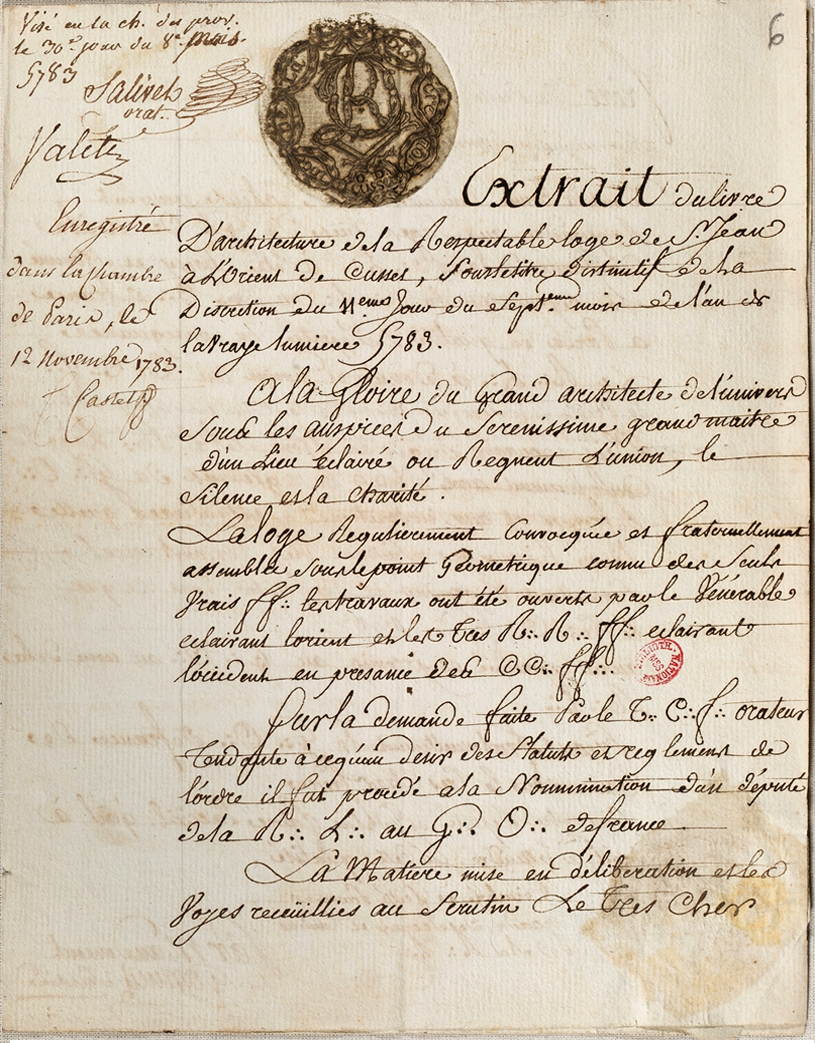 6
Visé en la ch. des prov.
le 30.e jour du 8.e mois
5783
Salivet
orat.
Valetz
Enregistré
dans la chambre
de Paris, le
12 Novembre 1783.
Castets
Extrait du livre
D'architecture de la Respectable loge de St Jean
à L'Orient de Cusset, Sous le titre distinctif de la
Discretion du 11eme Jour du Septeme mois de l'an de
la vraye lumiere 5783.
A la Gloire du Grand architecte de l'univers
sous les auspices du Serenissime grand maitre
d'un Lieu éclairé ou Regnent L'union, le
Silence et la charité.
La loge Regulierement Convocquée et fraternellement
assemblée sous le point Geometrique connu des Seuls
Vrais ff∴ les travaux ont été ouverts par le Vénérable
eclairant lorient et les Tres R∴ R∴ ff∴ eclairant
l'occident en presance des CC∴ ff∴
Sur la demande faite Par le T∴ C∴ f∴ orateur
Tendante à ce qu'au desir des Statuts et reglements de
l'ordre il fut procédé a la Nommination d'un député
de la R∴ L∴ au G∴ O∴ de france
La Matiere mise en déliberation et les
Voyes recüillies au Scrutin Le Tres Cher